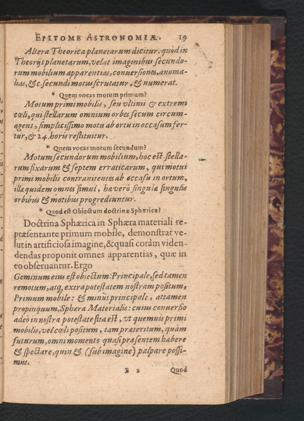 EPITOME ASTRONOMIÆ. 19
Altera Theorica planetarum dicitur, quòd in
Theorijs planetarum, velut imaginibus secundo-
rum mobilium apparentias, conuersiones, anoma-
lias, &c. secundi motus scrutatur, & numerat.
* Quem vocas motum primum?
Motum primi mobilis, seu vltimi & extremi
cœli, qui stellarum omnium orbes secum circum-
agens, simplicissimo motu ab ortu in occasum fer-
tur, & 24. horis restituitur.
* Quem vocas motum secundum?
Motum secundorum mobilium, hoc est stella-
rum fixarum & septem erraticarum, qui motui
primi mobilis contraniten ab occasu in ortum,
illæ quidem omnes simul, hæ verò singulæ singulis
orbibus & motibus progrediuntur.
* Quod est Obiectum doctrinæ Sphæricæ?
Doctrina Sphærica in Sphæra materiali re-
præsentante primum mobile, demonstrat ve-
lut in artificiosa imagine, & quasi coràm viden-
das proponit omnes apparentias, quæ in
eo obseruantur. Ergo
Geminum eius est obiectum: Principale, sed tamen
remotum, atq; extra potestatem nostram positum,
Primum mobile: & minùs principale, attamen
propinquum, Sphæra Materialis: cuius conuersio
adeò in nostra potestate sita est, vt quemuis primi
mobilis, vel cœli positum, tam præteritum, quàm
futurum, omni momento quasi præsentem habere
& spectare, quin & (sub imagine) palpare possi-
mus.
B 2 Quod